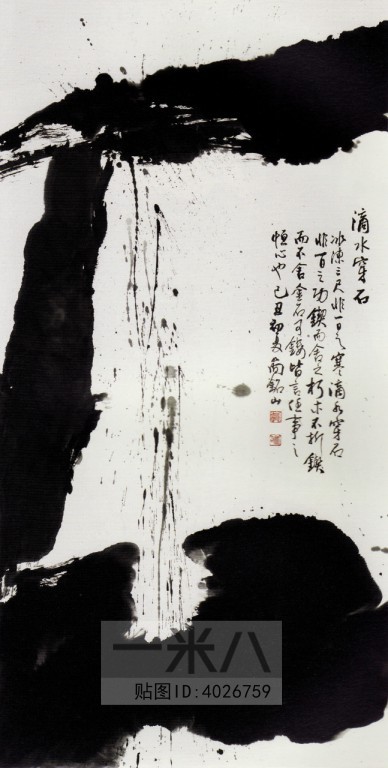 滴水穿石
冰凍三尺非一日之寒滴水穿石
非百日之功鍥而舍之朽木不折鍥
而不舍金石可鏤皆言恆事之
恒心也己丑初夏
一米八
贴图ID:4026759